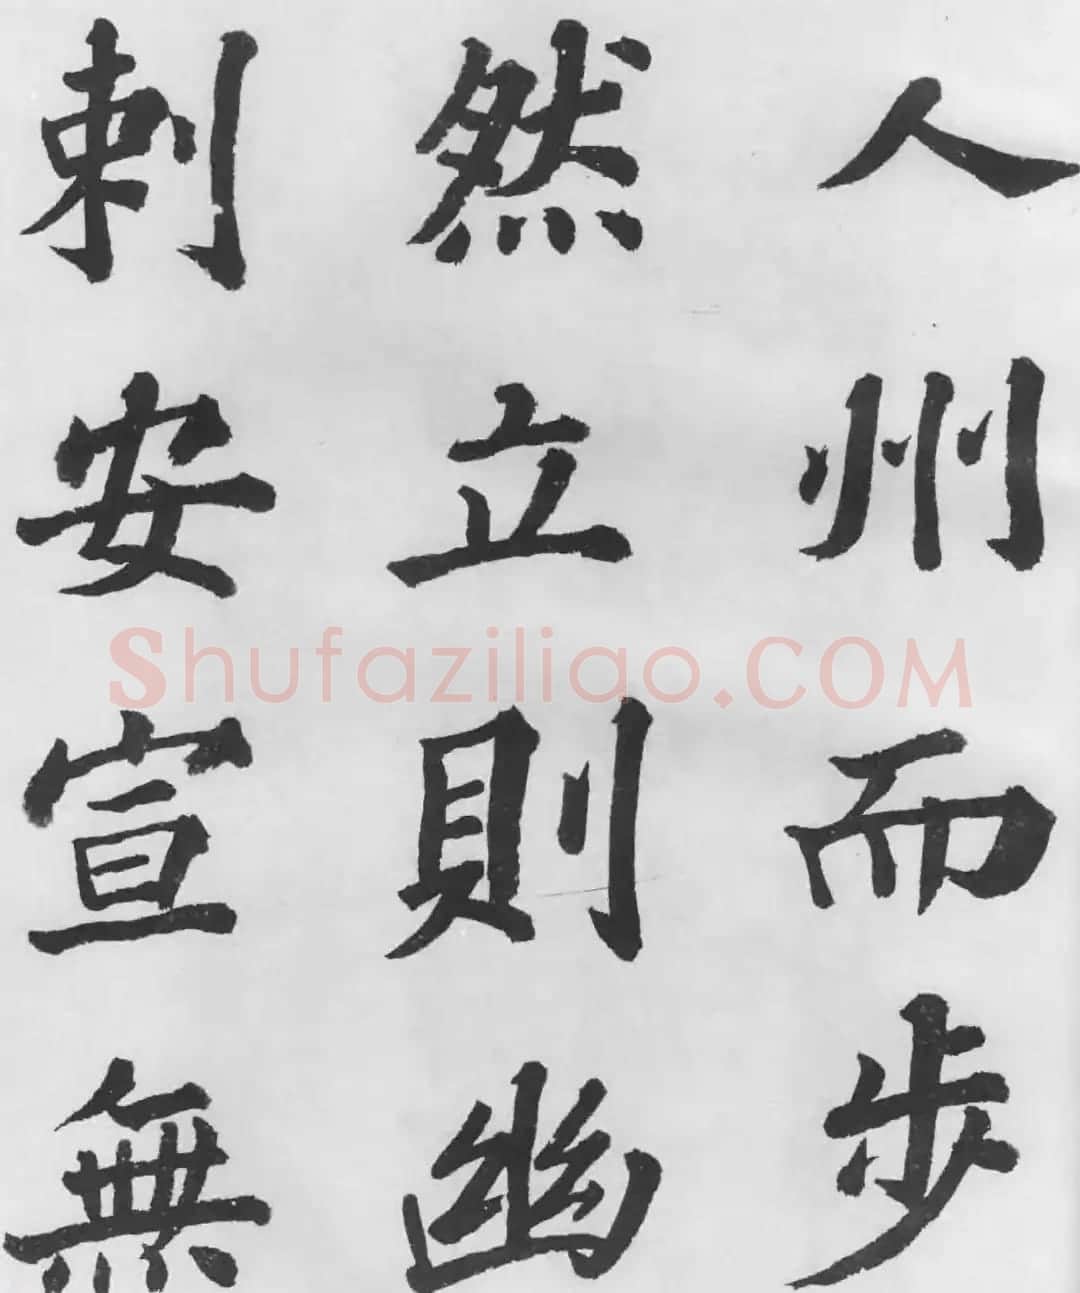 人州而步
然立則幽
刺安宣無
Shufaziliao.COM